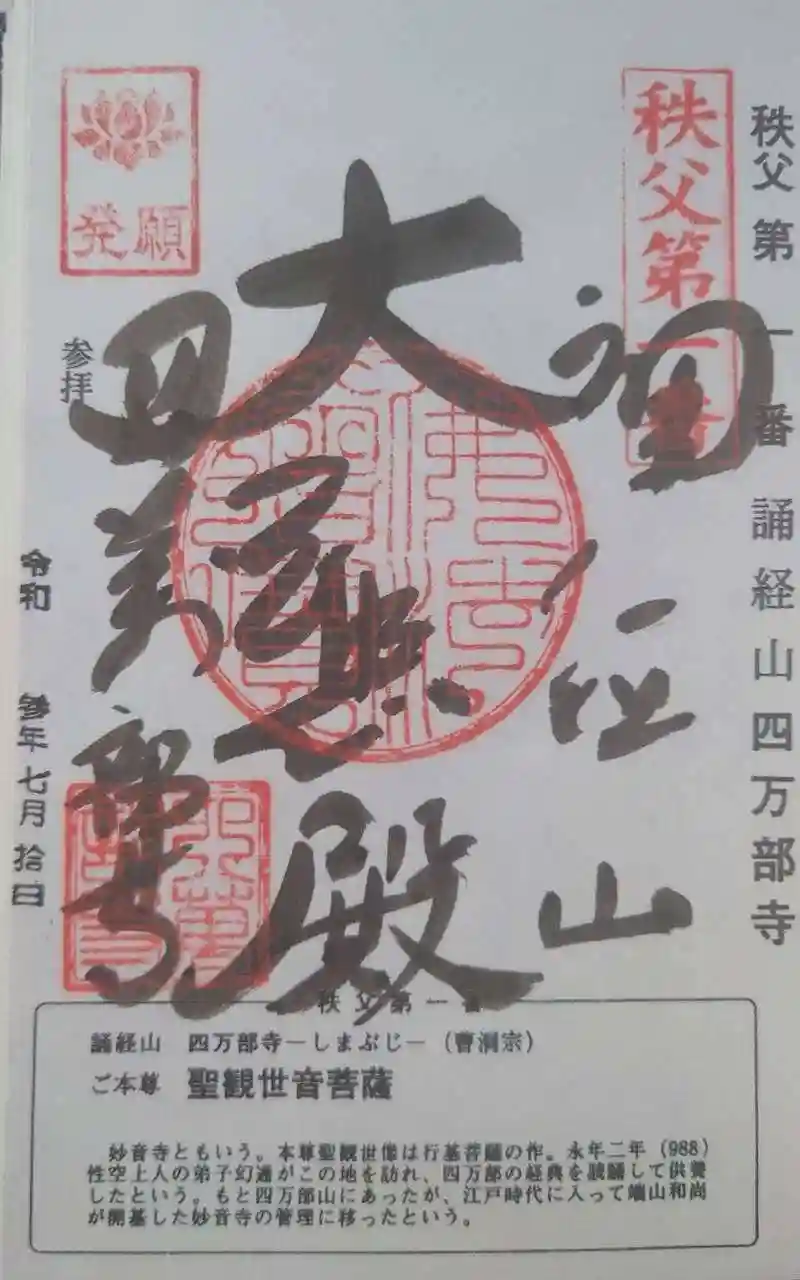 秩父 第一番 誦経山 四万部寺
秩父第一番
誦経山
大悲殿
四萬部寺
発願
参拝
令和 参年 七月 拾日
秩父第一番
誦経山 四万部寺－しまぶじ－（曹洞宗）
ご本尊 聖観世音菩薩
妙音寺ともいう。本尊聖観世像は行基菩薩の作。永年二年（988）
性空上人の弟子幻通がこの地を訪れ、四万部の経典を読誦して供養
したという。もと四万部山にあったが、江戸時代に入って端山和尚
が開基した妙音寺の管理に移ったという。